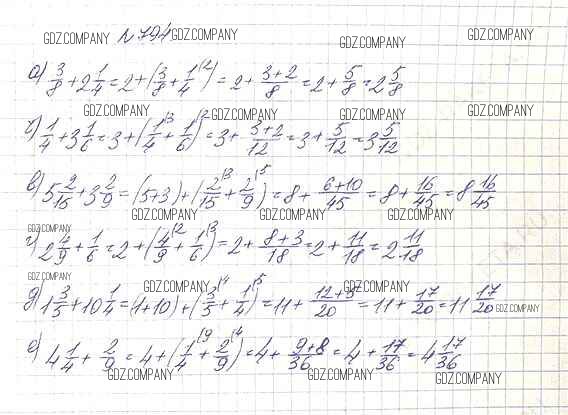 GDZ.COMPANY №794 GDZ.COMPANY GDZ.COMPANY GDZ.COMPANY
а) 3/8 + 2 1/4 = 2 + (3/8 + 1/4 |2) = 2 + (3+2)/8 = 2 + 5/8 = 2 5/8
GDZ.COMPANY GDZ.COMPANY GDZ.COMPANY
б) 1/4 + 3 1/6 = 3 + (1/4 |3 + 1/6 |2) = 3 + (3+2)/12 = 3 + 5/12 = 3 5/12
в) 5 2/15 + 3 2/9 = (5+3) + (2/15 |3 + 2/9 |5) = 8 + (6+10)/45 = 8 + 16/45 = 8 16/45
GDZ.COMPANY GDZ.COMPANY GDZ.COMPANY GDZ.COMPANY
г) 2 4/9 + 1/6 = 2 + (4/9 |2 + 1/6 |3) = 2 + (8+3)/18 = 2 + 11/18 = 2 11/18
GDZ.COMPANY GDZ.COMPANY GDZ.COMPANY
д) 1 3/5 + 10 1/4 = (1+10) + (3/5 |4 + 1/4 |5) = 11 + (12+5)/20 = 11 + 17/20 = 11 17/20 GDZ.COMPANY
е) 4 1/4 + 2/9 = 4 + (1/4 |9 + 2/9 |4) = 4 + (9+8)/36 = 4 + 17/36 = 4 17/36
GDZ.COMPANY GDZ.COMPANY GDZ.COMPANY